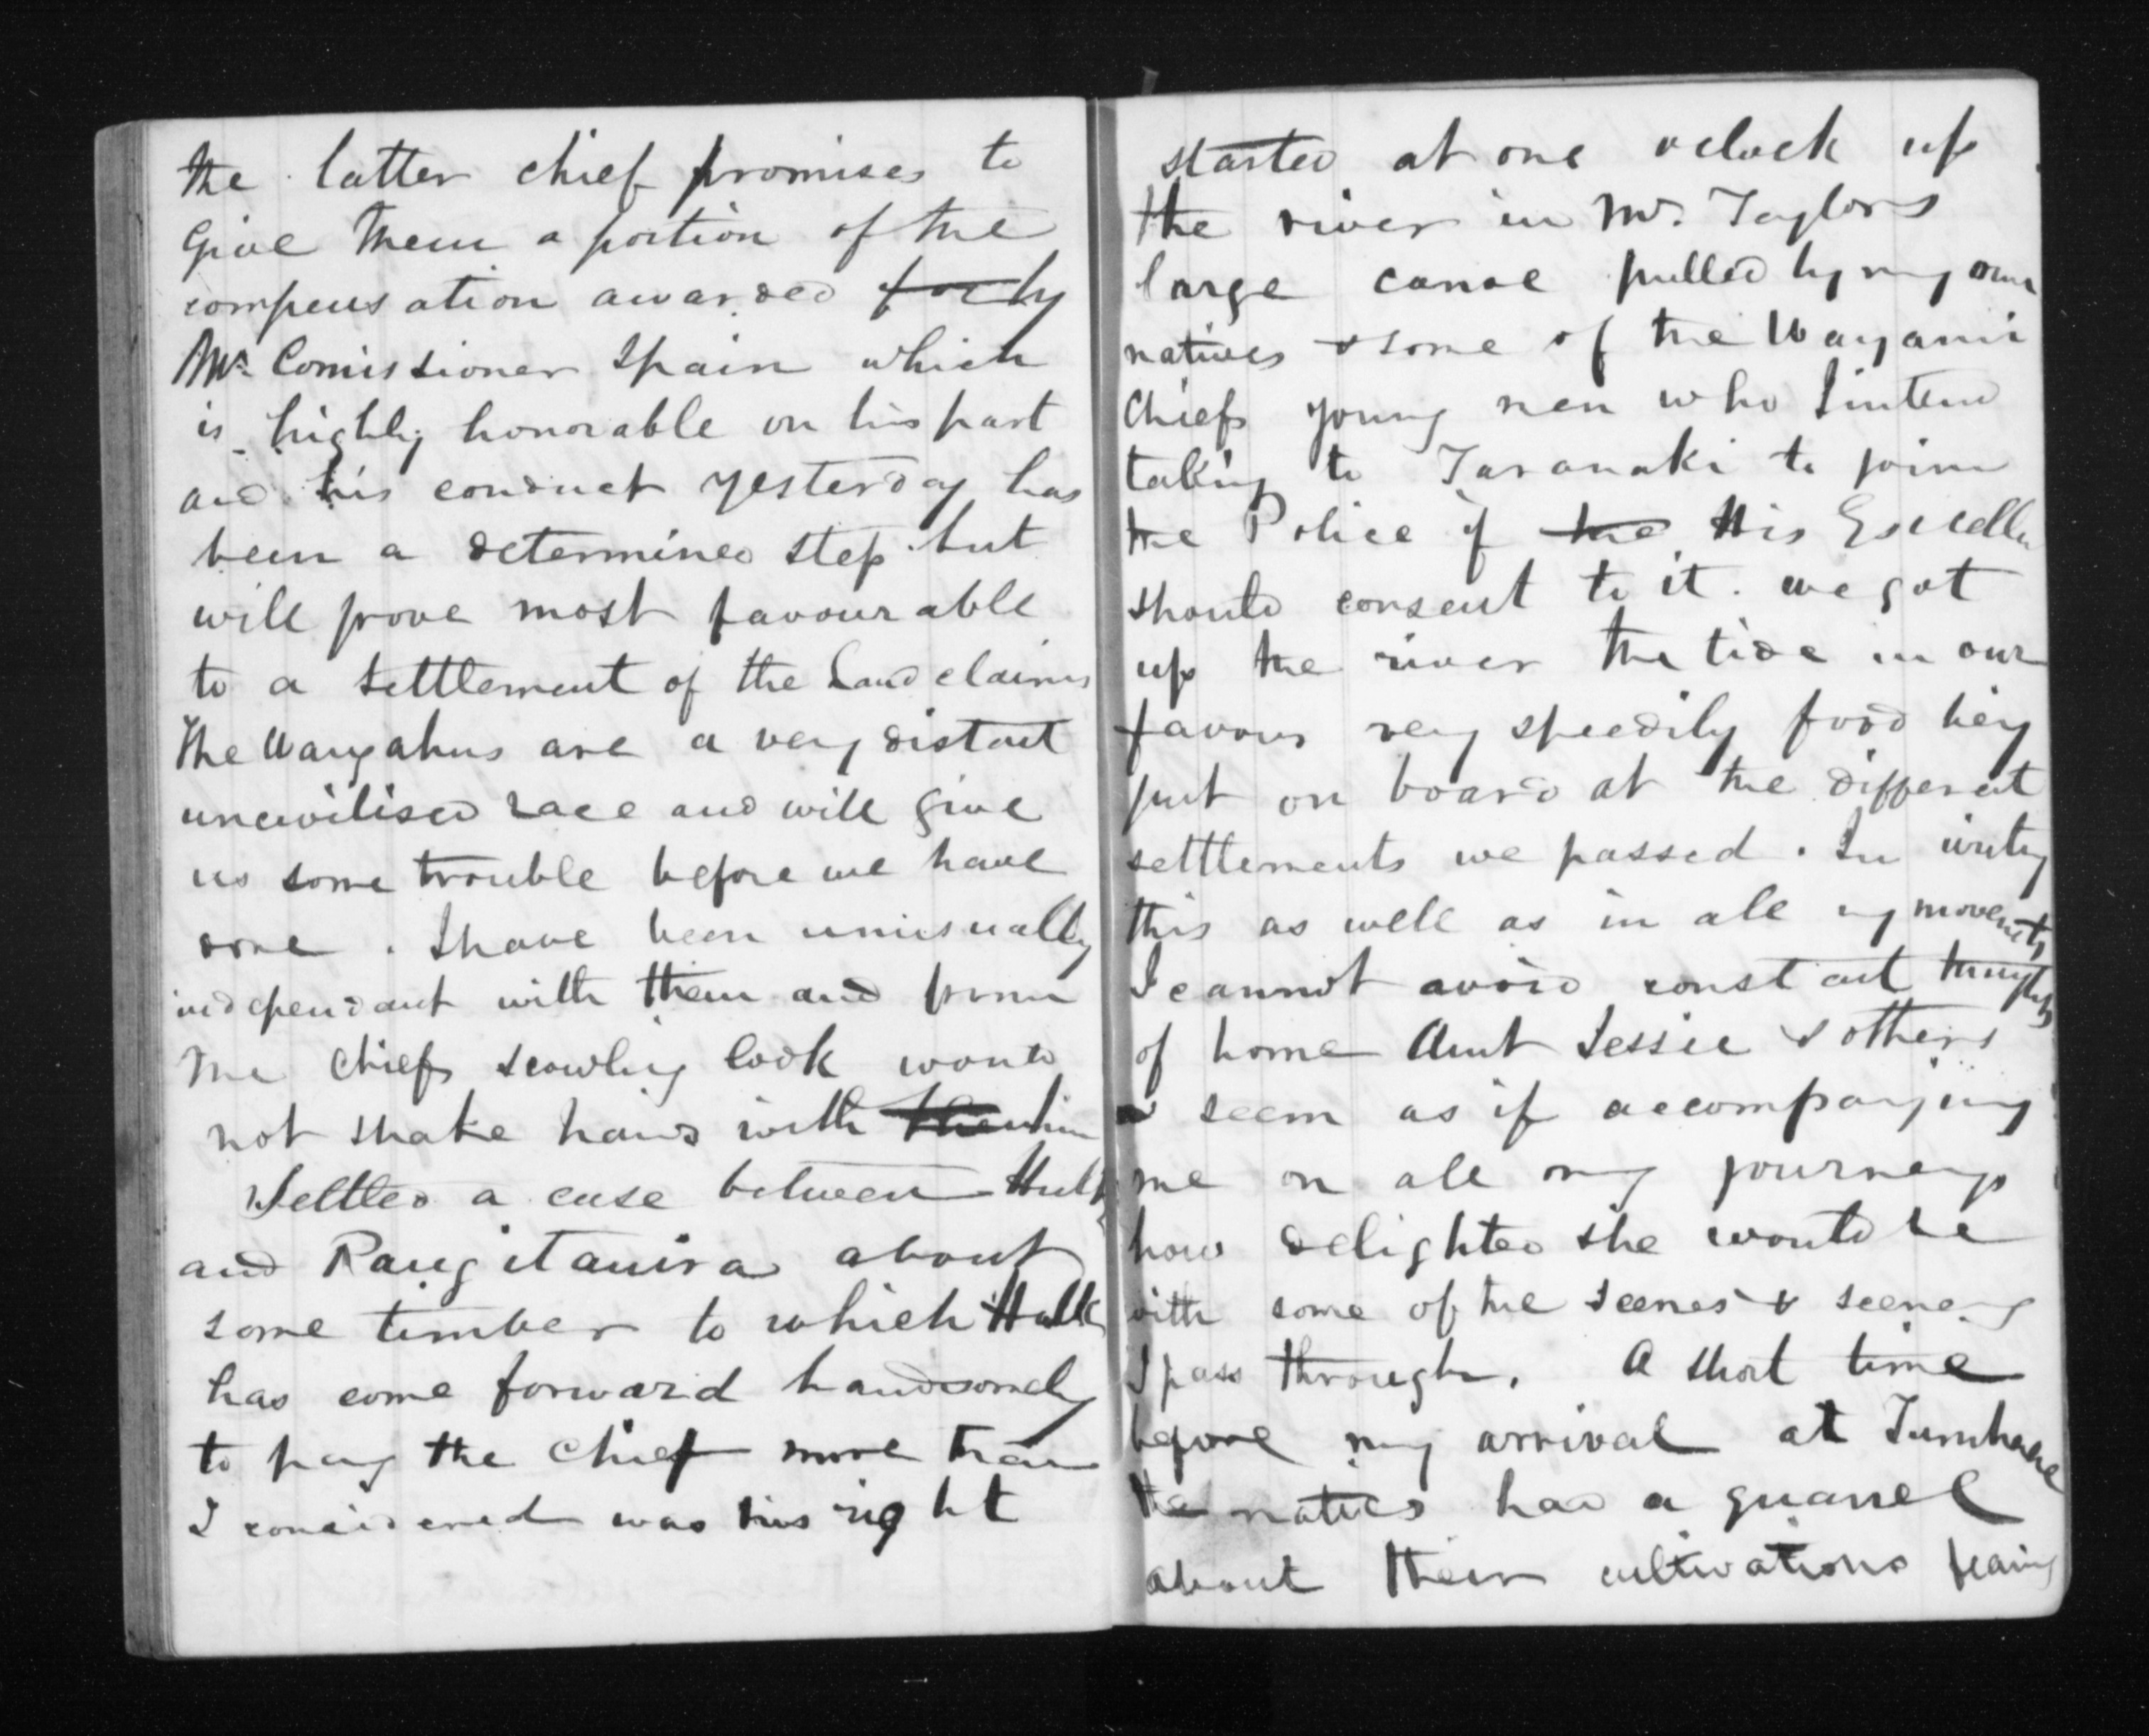 the latter chief promises to
give them a portion of the
compensation awarded for by
Mr. Comissioner Spain which
is highly honorable on his part
and his conduct yesterday has
been a determined step but
will prove most favourable
to a settlement of the Land claims
The Wangahus are a very distant
uncivilised race and will give
us some trouble before we have
done. I have been unusually
independant with them and from
the chiefs scowling look would
not shake hands with them him
Settled a case between
and Rangitauira about
some timber to which
has come forward handsomely
to pay the chief more than
I considered was his right
started at one oclock up
the river in Mr. Taylors
large canoe pulled by my own
natives & some of the Wanganui
Chiefs young men who I intend
taking to Taranaki to join
the Police if the His Excelle
should consent to it. we got
up the river the tide in our
favour very speedily food being
put on board at the different
settlements we passed. In writing
this as well as in all my movements
I cannot avoid constant thoughts
of home Aunt Jessie & others
seem as if accompanying
me on all my journeys
how delighted she would be
with some of the scenes & scenery
I pass through. A short time
before my arrival at
the natives had a quarrel
about their cultivations